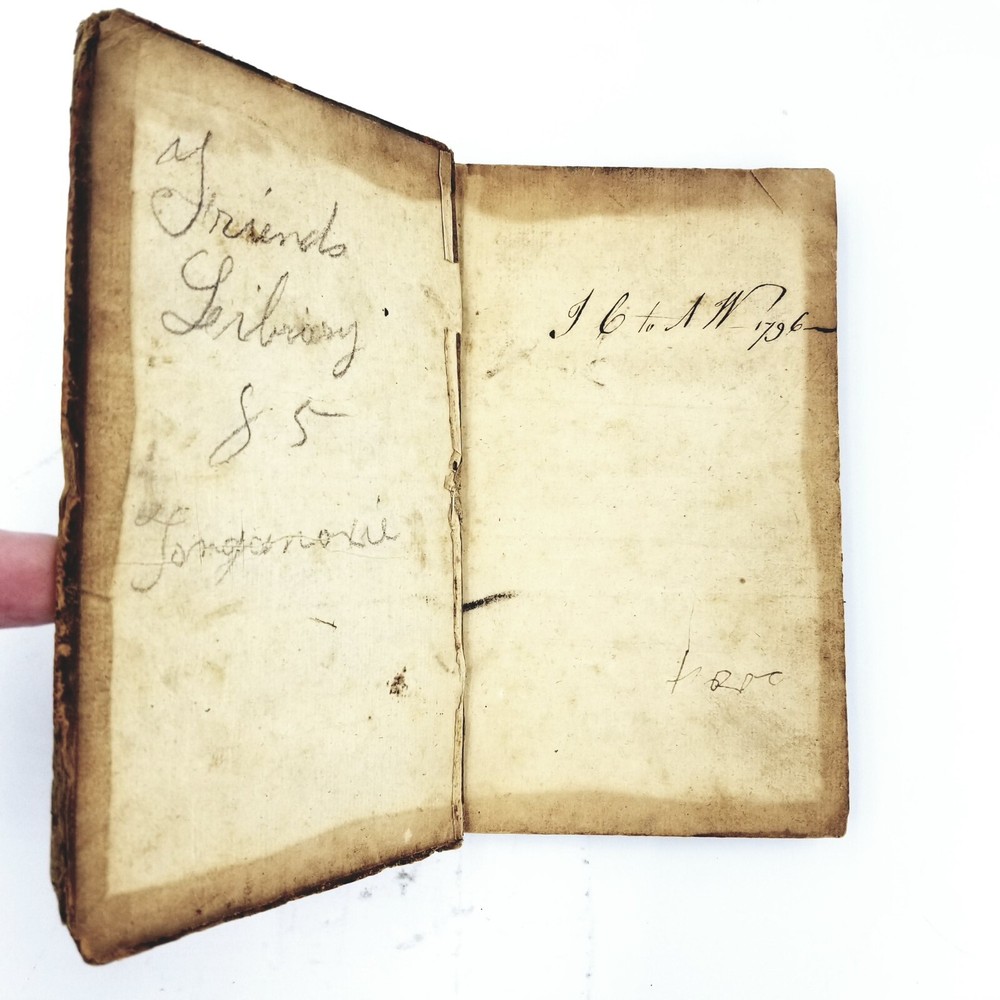 Friends
Leibrary
85
Tonganoxie
I C to A W 1796